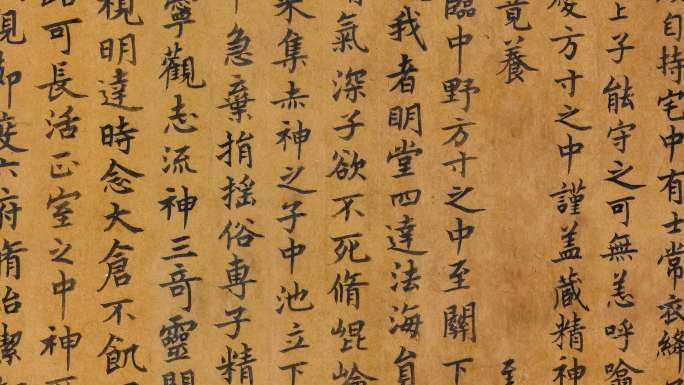 自持宅中有士常衣絳
上子能守之可無恙呼噏
方寸之中謹蓋藏精神
竟養
臨中野方寸之中至關下
我者明堂四達法海員
氣深子欲不死脩崐崘
集赤神之子中池立下
急棄捐搖俗專子精
寧觀志流神三奇靈
視明達時念大倉不飢
可長活正室之中神
度六府脩治潔